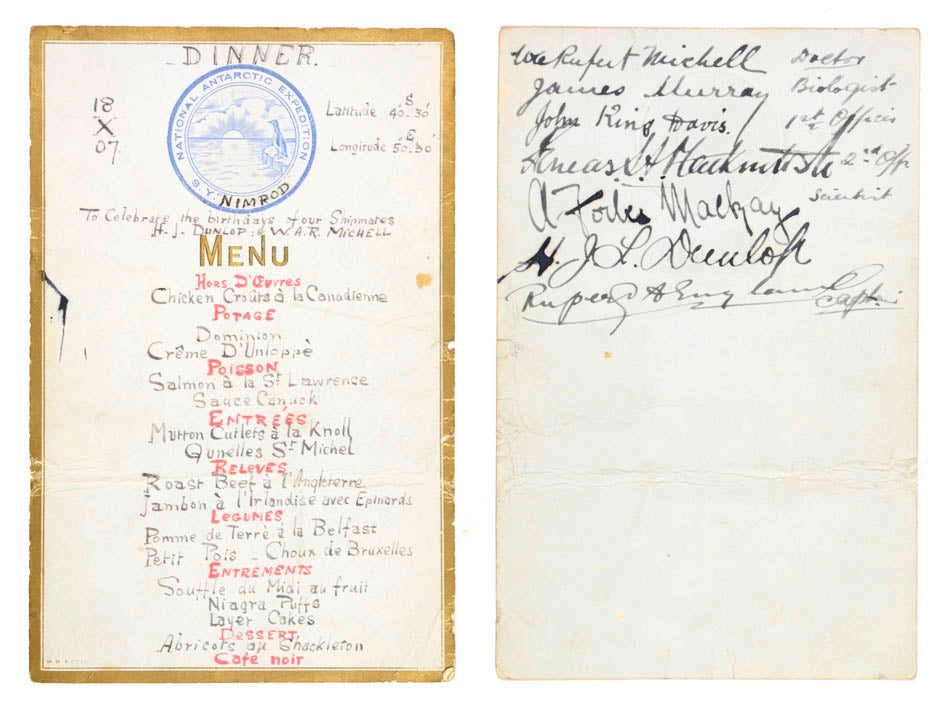 DINNER.
NATIONAL ANTARCTIC EXPEDITION
S.Y. "NIMROD"
18
X
07.
S
Latitude 40-30'
E
Longitude 50-30'
To Celebrate the birthdays of our Shipmates
H-J- DUNLOP: & W.A.R. MICHELL
MENU
HORS D'ŒUVRES
Chicken Croûts à la Canadienne
POTAGE
Dominion
Crême D'Unloppè
POISSON
Salmon à la St Lawrence
Sauce Canuck
ENTRÉES
Mutton Cutlets à la Knoll
Qunelles St Michel
RELEVES
Roast Beef à l'Angleterre
Jambon à l'Irlandise avec Epinards
LEGUMES
Pomme de Terrè à la Belfast
Petit Pois - Choux de Bruxelles
ENTREMENTS
Souffle du Midi au fruit
Niagra Puffs
Layer Cakes
DESSERT
Abricots au Shackleton
Cafe noir
Rupert Michell Doctor
James Murray Biologist
John King Davis. 1st Officer
Aeneas. A. Mackintosh 2nd Offr
A Forbes Mackay Scientist
H. J. L. Dunlop
Rupert England Captain